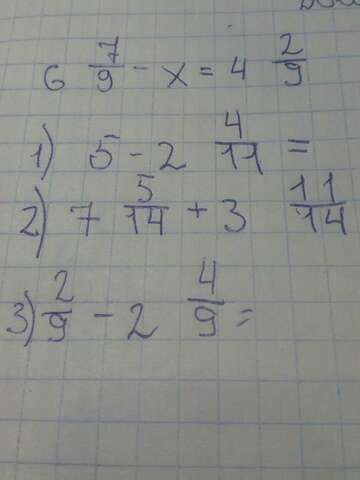 6 7/9 - x = 4 2/9
1) 5 - 2 4/11 =
2) 7 5/14 + 3 11/14
3) 2/9 - 2 4/9 =